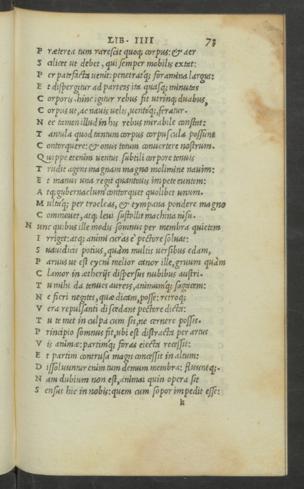 LIB. IIII 73
P ræterea tum rarescit quoq; corpus: et aer
S cilicet ut debet, qui semper mobilis extet:
P er patefacta venit: penetratq; foramina largus:
E t dispergitur ad partes ita quasq; minutas
C orporis. hinc igitur rebus fit utrinq; duabus,
C orpus ut, ac navis velis, ventoq; feratur.
N ec tamen illud in his rebus mirabile constat:
T antula quod tantum corpus corpuscula possunt
C ontorquere: et onus totum convertere nostrum.
Q uippe etenim ventus subtili corpore tenuis
T rudit agens magnam magno molimine navim:
E t manus una regit quantovis impete euntem:
A tq; gubernaclum contorquet quolibet unum.
M ultaq; per trocleas, et tympana pondere magno
C ommovet, atq; levi sustollit machina nisu.
N unc quibus ille modis somnus per membra quietem
I rriget: atq; animi curas è pectore solvat:
S uavidicis potius, quàm multis versibus edam,
P arvus ut est cycni melior canor ille, gruum quàm
C lamor in ætherijs dispersus nubibus austri.
T u mihi da tenues aures, animumq; sagacem:
N e fieri negites, quæ dicam, posse: retroq;
V era repulsanti discedant pectore dicta:
T ute met in culpa cum sis, ne cernere possis.
P rincipio somnus fit, ubi est distracta per artus
V is animæ: partimq; foras eiecta recessit:
E t partim contrusa magis concessit in altum:
D issolvuntur enim tum demum membra: fluuntq;.
N am dubium non est, animai quin opera sit
S ensus hic in nobis: quem cum sopor impedit esse:
k